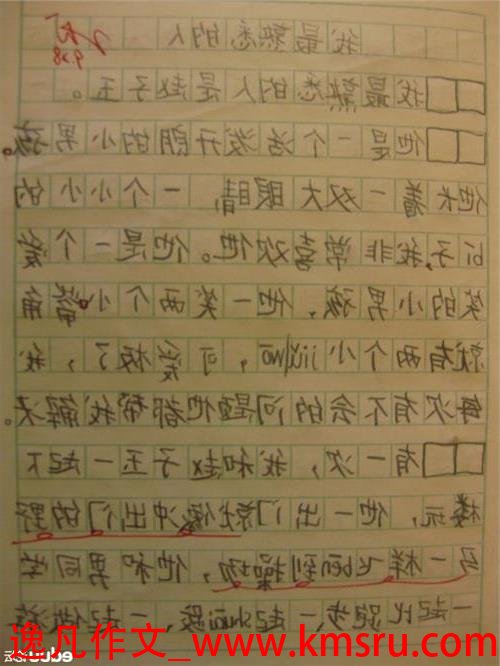 我最熟悉的人
9.28
我最熟悉的人是赵子玉。
他是一个活泼开朗的小男孩。
他长着一双大眼睛,一个小小的
bí子,我非常喜欢他。他是一个爱
笑的小男孩,他一笑两个小嘴角
就有两个小jiǔwō,可爱极了,我
每次有不会的问题他都帮我解决。
有一次,我和赵子玉一起下
楼玩,他一出门就像冲出门的野
马一样飞bēn到操场,他和男同学
一起比跑步,一起 一起做游
逸凡作文_www.kmsru.com